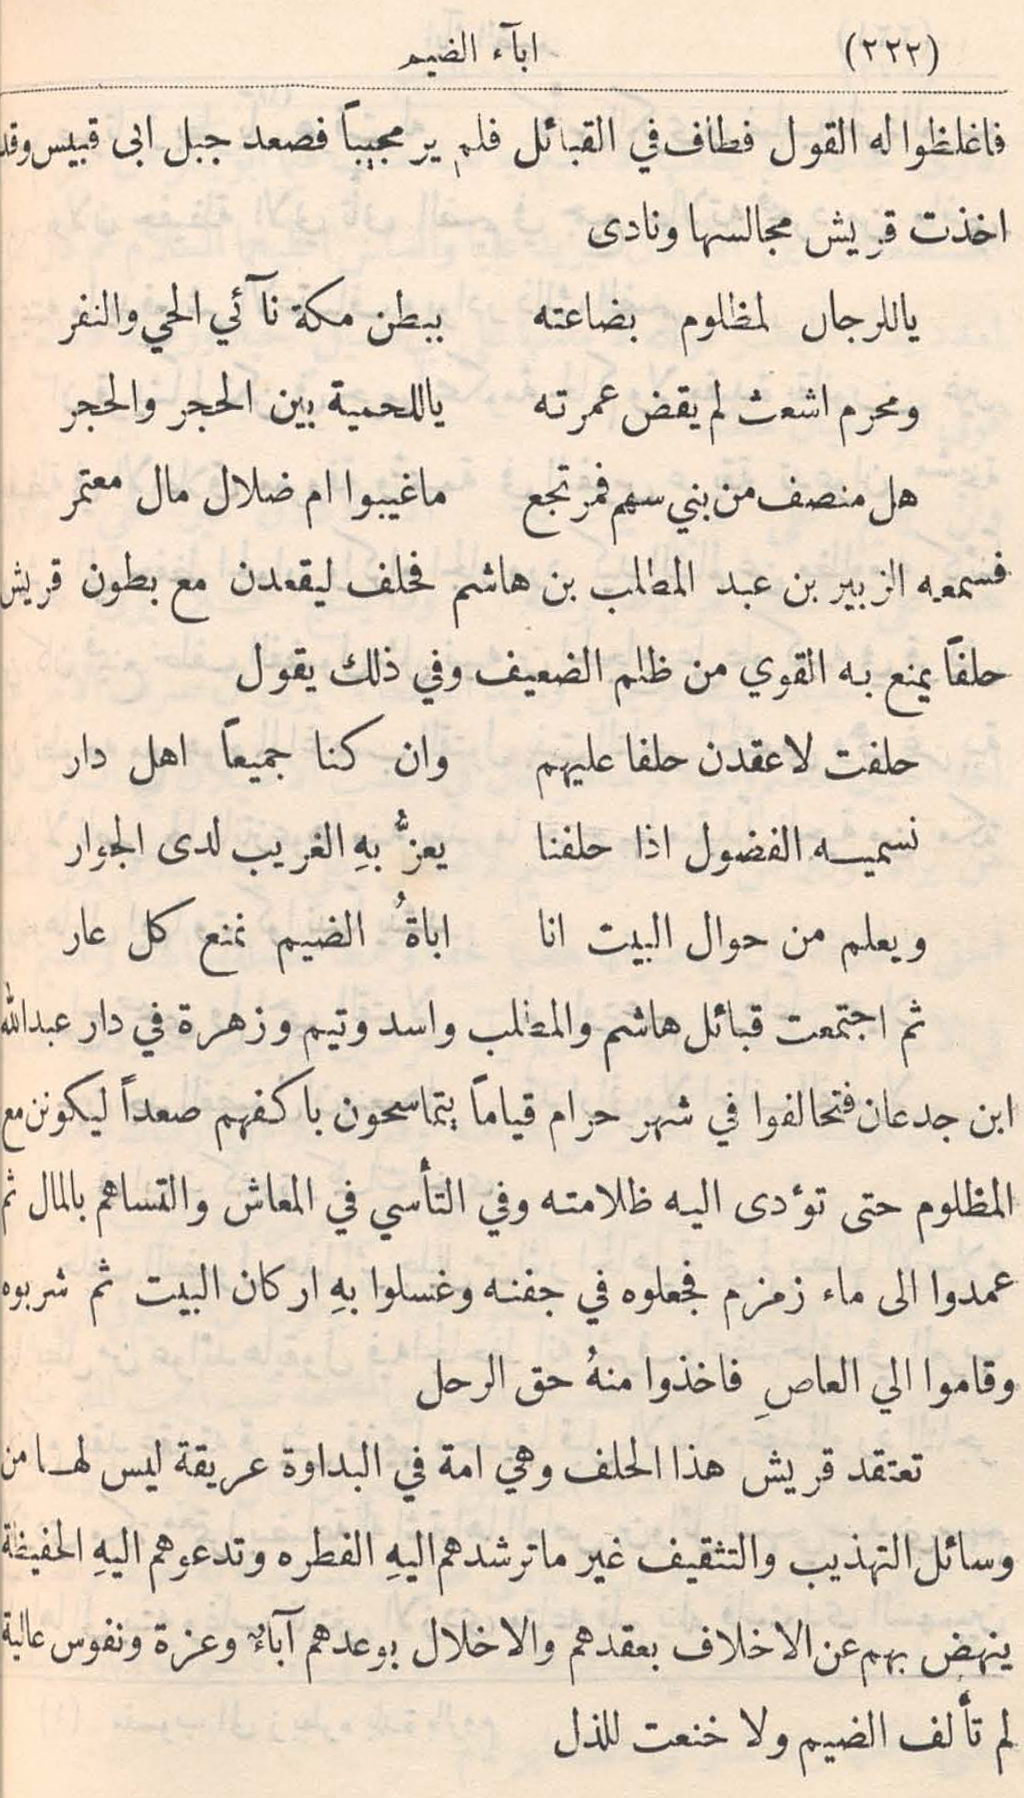 (٢٢٢) ابآء الضيم
فاغلظوا له القول فطاف في القبائل فلم ير مجيباً فصعد جبل ابى قبيس وقد
اخذت قريش مجالسها ونادى
ياللرجال لمظلوم بضاعته ببطن مكة نآئي الحي والنفر
ومحرم اشعث لم يقض عمرته ياللحمية بين الحجر والحجر
هل منصف من بني سهم فمرتجع ماغيبوا ام ضلال مال معتمر
فسمعه الزبير بن عبد المطلب بن هاشم فحلف ليقعدن مع بطون قريش
حلفاً يمنع به القوي من ظلم الضعيف وفي ذلك يقول
حلفت لاعقدن حلفا عليهم وان كنا جميعاً اهل دار
نسميه الفضول اذا حلفنا يعزُّ بهِ الغريب لدى الجوار
ويعلم من حوال البيت انا اباةُ الضيم نمنع كل عار
ثم اجتمعت قبائل هاشم والمطلب واسد وتيم وزهرة في دار عبدالله
ابن جدعان فتحالفوا في شهر حرام قياماً يتماسحون باكفهم صعداً ليكونن مع
المظلوم حتى تؤدى اليه ظلامته وفي التأسي في المعاش والتساهم بالمال ثم
عمدوا الى ماء زمزم فجعلوه في جفنه وغسلوا بهِ اركان البيت ثم شربوه
وقاموا الي العاصِ فاخذوا منهُ حق الرحل
تعتقد قريش هذا الحلف وهي امة في البداوة عريقة ليس لها من
وسائل التهذيب والتثقيف غير ماترشدهم اليهِ الفطره وتدعوهم اليهِ الحفيظة
ينهض بهم عن الاخلاف بعقدهم والاخلال بوعدهم آباءٌ وعزة ونفوس عالية
لم تألف الضيم ولا خنعت للذل